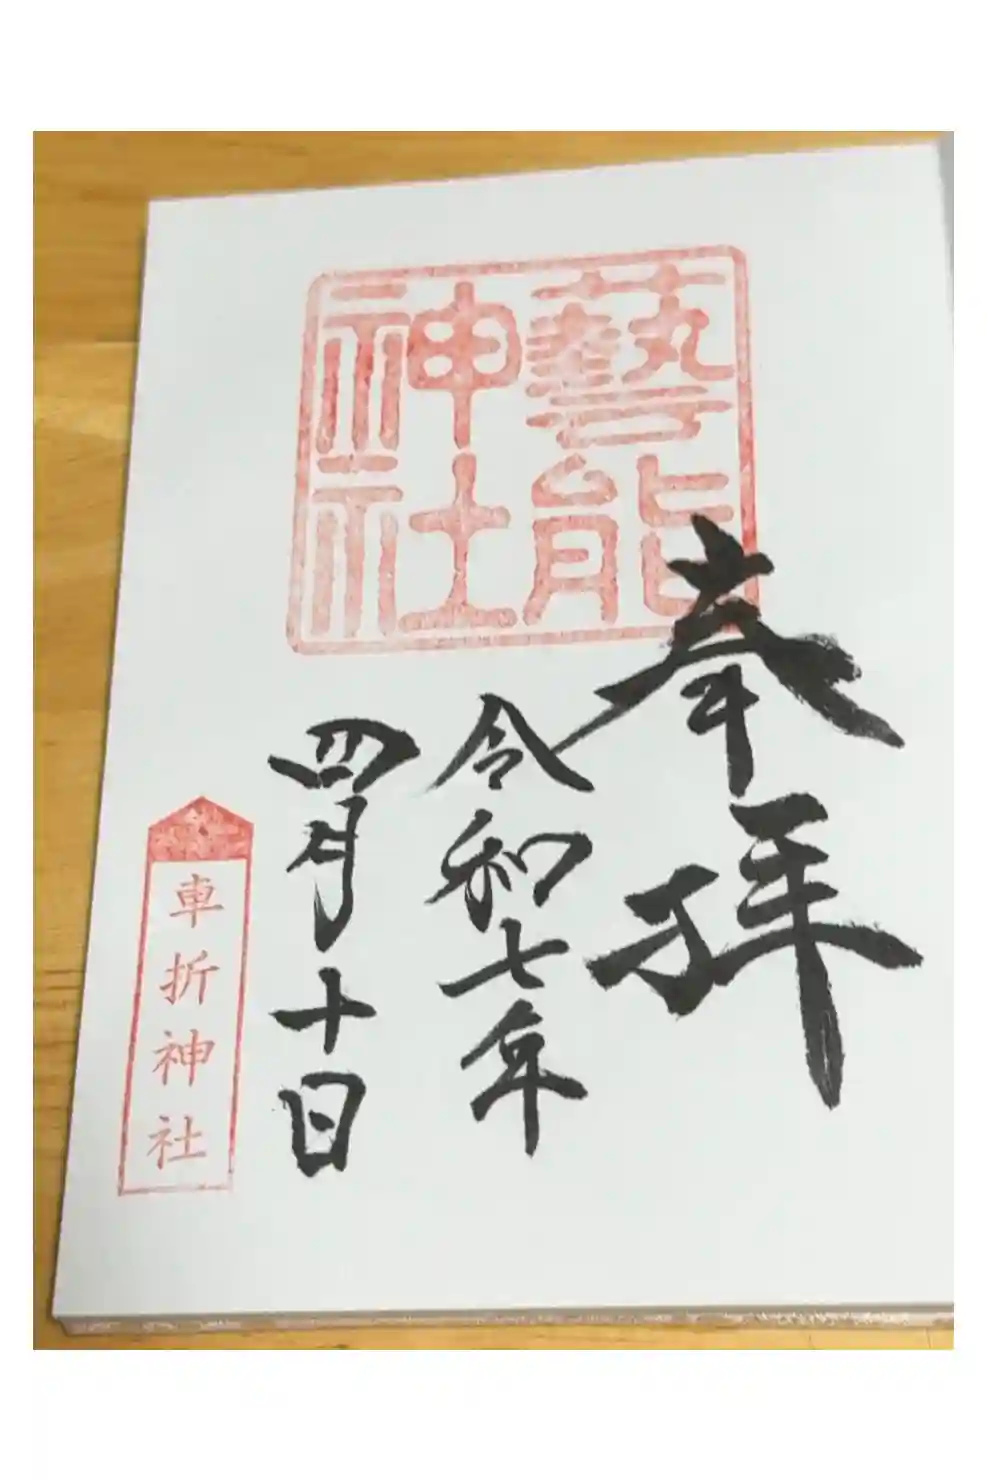 奉拝
藝能
神社
令和七年
四月十日
車折神社